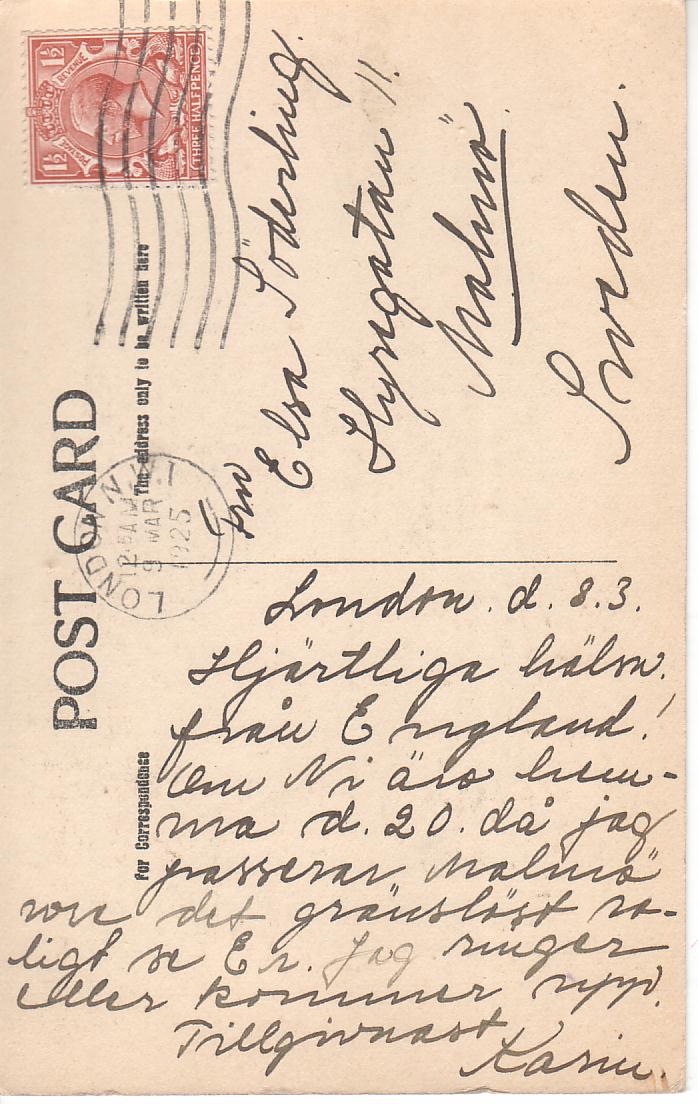 POST CARD
For Correspondence
The address only to be written here
1½ POSTAGE REVENUE 1½
THREE HALFPENCE
LONDON N.W.1
12.15AM
9 MAR
1925
Frw
Elsa Söderling.
Hyregatan 11.
Malmö.
Sweden.
London. d. 8.3.
Hjärtliga hälsn.
från England!
Om Ni äro hem-
ma d. 20. då jag
passerar Malmö
vore det gränslöst ro-
ligt se Er. Jag ringer
eller kommer upp.
Tillgivnast
Karin.